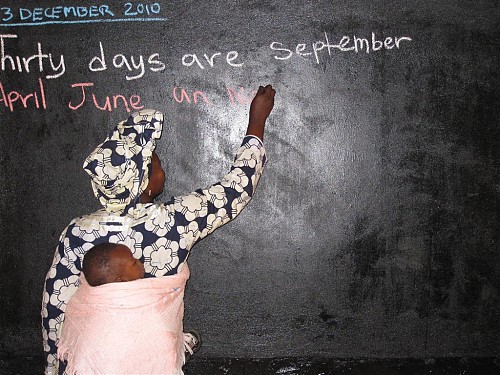 3 DECEMBER 2010
Thirty days are September
April June un